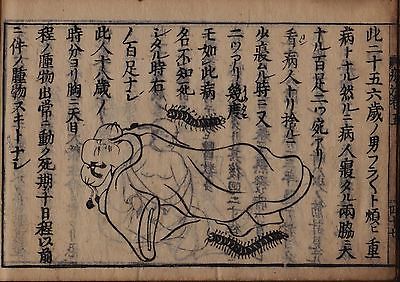 此二十五六歳ノ男フラ〱ト煩ヒ重
病トナル然ルニ病人寝タル両脇ニ大
ナル百足二ツ宛アリ
看病人十リ捨ルニ
少寝ムル時ニ又
二ツアリ幾度
モ如シ此病人
名不知死
シタル時右
ノ百足ナシ
此人十八歳ノ
時分ヨリ胸ニ天目
程ノ腫物出常ニ動ク死期十日程以前
ニ件ノ腫物スキトナシ